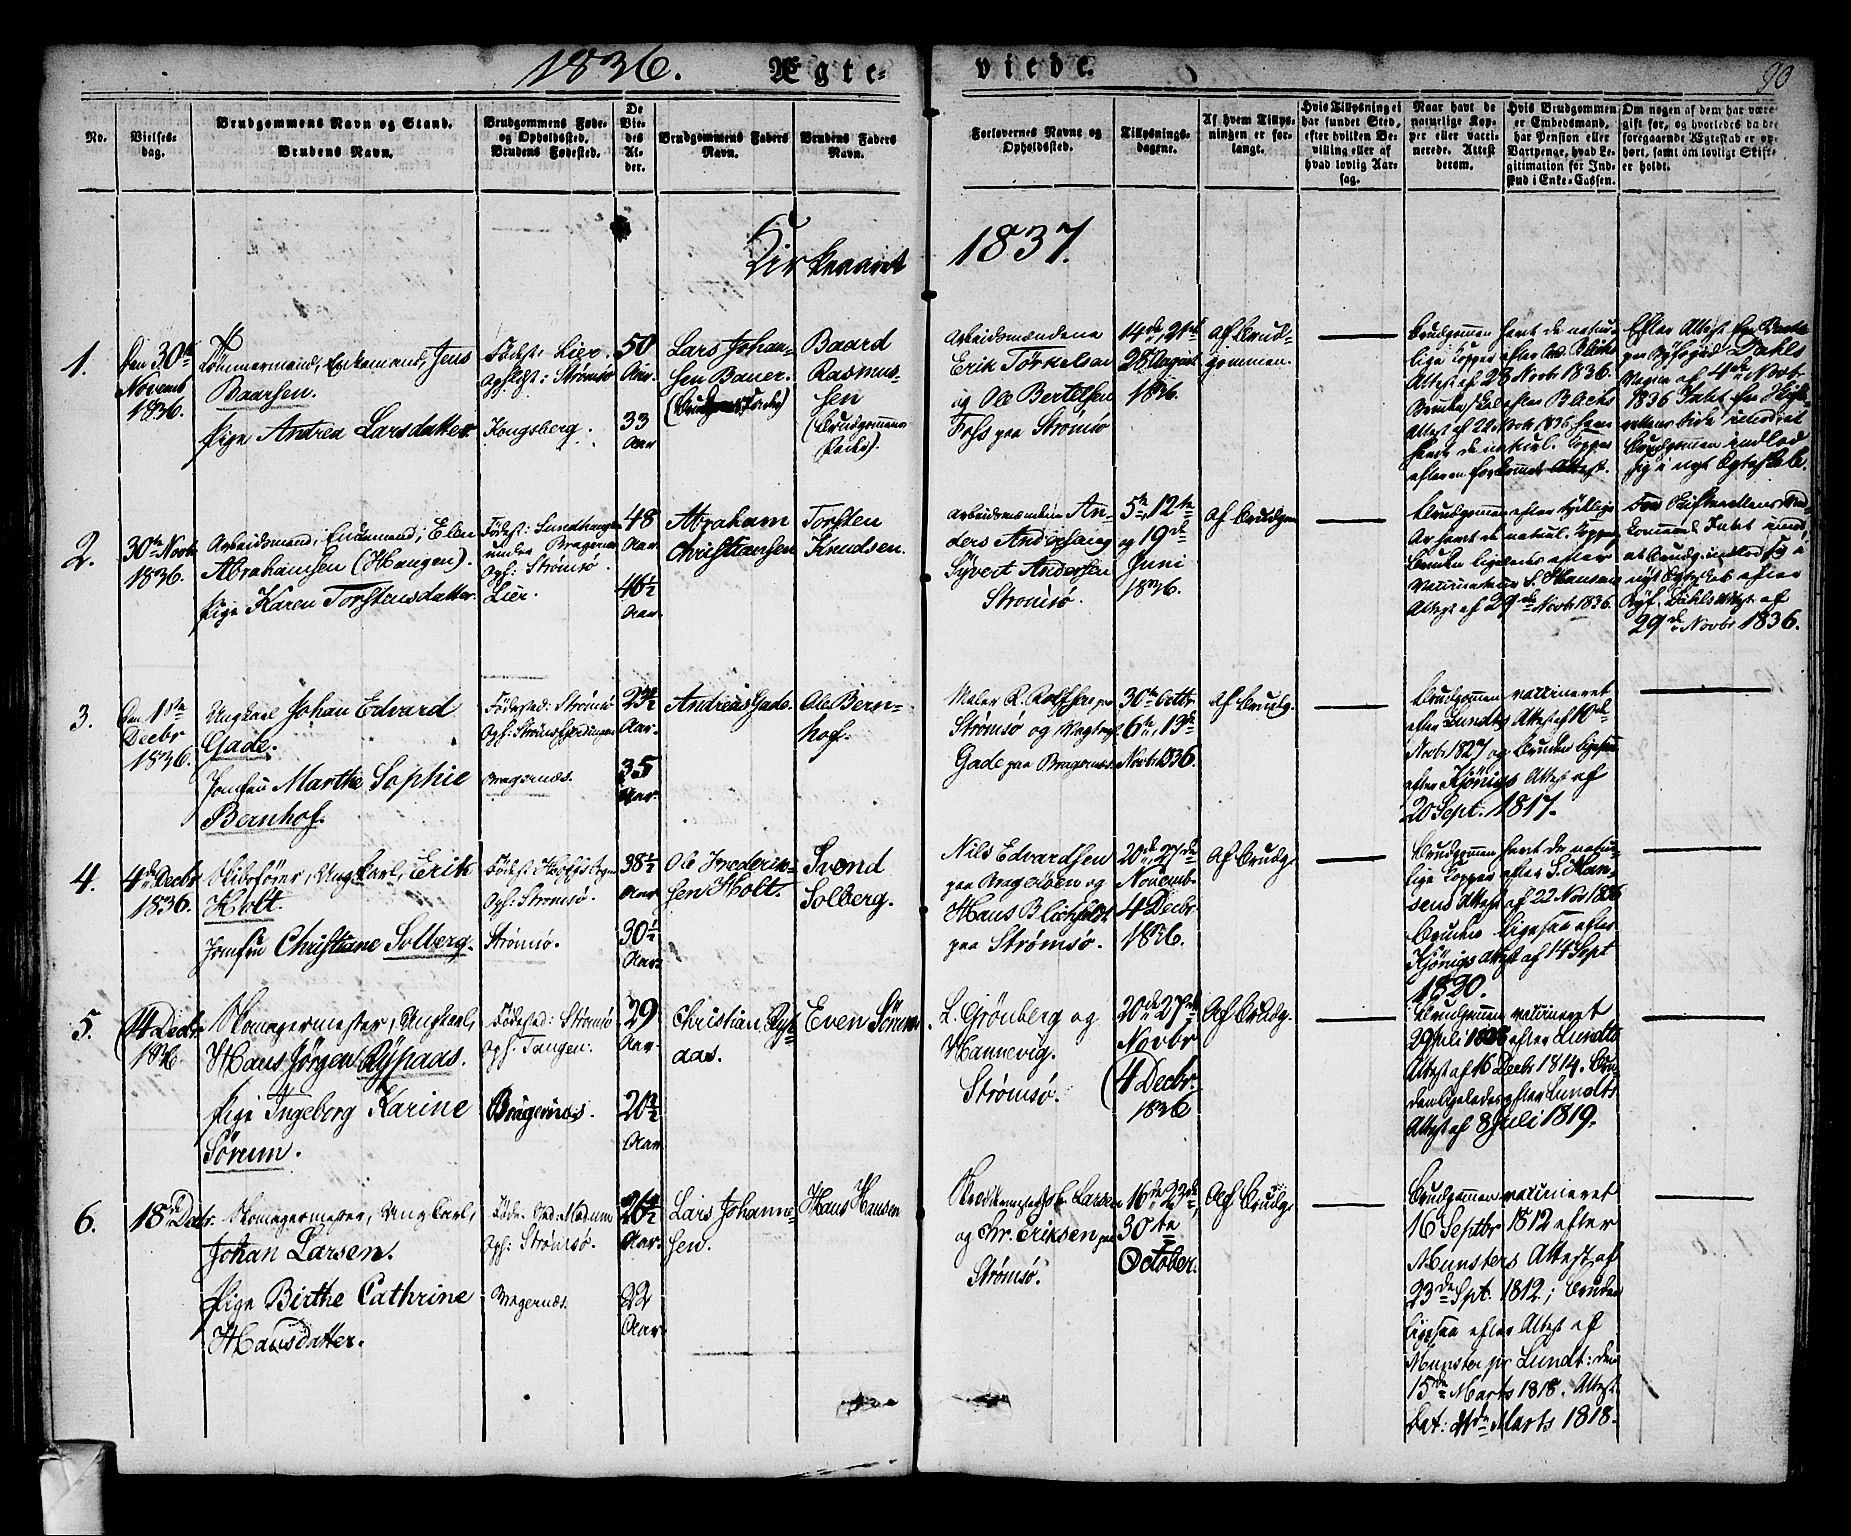 1836. Ægte-
viede.
90
No.
Vielses-
dag.
Brudgommens Navn og Stand.
Brudens Navn.
Brudgommens Føde-
og Opholdsted.
Brudens Fødested.
De
Vie-
des
Al-
der.
Brudgommens Faders
Navn.
Brudens Faders
Navn.
Forlovernes Navne og
Opholdsted.
Tillysnings-
dagene.
Af hvem Tillys-
ningen er for-
langt.
Hvis Tillysning ei
har fundet Sted,
efter hvilken Be-
villing eller af
hvad lovlig Aar-
sag.
Naar havt de
naturlige Kop-
per eller vacci-
nerede. Attest
derom.
Hvis Brudgommen
er Embedsmand,
har Pension eller
Vartpenge, hvad Le-
gitimation for Ind-
skud i Enke-Cassen.
Om nogen af dem har være
gift før, og hvorledes da de
foregaaende Ægteskab er op-
hørt, samt om lovligt Skift-
er holdt.
Kirkeaaret
1837.
1.
Den 30te
Novemb
1836.
Tømmermand, Enkemand, Jens
Baarsen.
Pige Andrea Larsdatter.
Fødest: Lier.
Opholdst: Strømsø
Kongsberg.
50
Aar.
33
Aar
Lars Johan-
sen Bauer.
Baard
Rasmus-
sen
(Brudgommens
Fader).
Arbeidsmændene
Erik Torkelsen
og Ole Bertelsen
Foss paa Strømsø
14de, 21de
28 August
1836.
Af Brud-
gommen.
Brudgommen havt de natur-
lige Kopper efter
Attest af 28 Novbr 1836.
Attest af 22 Novb 1836
havt de naturl. Kopper
Efter Attest
paa Byfoged Dahls
Vegne af 4de Novb
1836
Brudgommen indlod
sig i nyt Ægteskab.
2.
30te Novb
1836.
Arbeidsmand, Enkemand, Elen
Abrahamsen (Haugen).
Pige Karen Torstensdatter.
Fødest: Sandhaugen
under Bragernæs
Oph: Strømsø.
Lier.
48
Aar.
46½
Aar.
Abraham
Christiansen
Torsten
Knudsen.
Arbeidsmændene An-
ders Andersen og
Syvert Andersen
Strømsø.
5te, 12te
og 19de
Juni
1836.
Af Brudgom
Brudgommen efter
har havt de naturl. Kopper
Bruden ligeledes efter
Vaccinateur S. Hansens
Attest af 29de Novb 1836.
nyt Ægteskab efter
Byf. Dahls Attest af
29de Novbr 1836.
3.
Den 1ste
Decbr
1836.
Ungkarl Johan Edvard
Gade.
Jomfru Marthe Sophie
Bernhof.
Fødested: Strømsø
Bragernæs.
23½
Aar.
35
Aar.
Andreas Gade.
Ole Bern-
hof.
Maler R. Rolfsen paa
Strømsø og
Gade paa Bragernæs
30te Octbr
6te, 13de
Novb 1836.
Af Brudg.
Brudgommen vaccineret
efter Lundts Attest af 10de
Novb 1827 og Bruden ligesaa
efter Kjönigs Attest af
20 Sept. 1817.
4.
4de Decbr
1836.
Skibsfører, Ungkarl, Erik
Holt.
Jomfru Christiane Solberg.
Oph: Strømsø.
Strømsø.
38½
Aar
30½
Aar
Ole Frederik-
sen Holt.
Svend
Solberg.
Nils Edvardsen
paa Bragerøen og
Hans Blichfeldt
paa Strømsø.
20de, 27de
Novemb.
4 Decbr.
1836.
Af Brudg.
Brudgommen havt de natur-
lige Kopper efter S. Han-
sens Attest af 22 Nov 1836
Bruden ligesaa efter
Kjönigs Attest af 14 Sept
1820.
5.
4 Decbr.
1836.
Skomagermester, Ungkarl,
Hans Jørgen Ryspaas.
Pige Ingeborg Karine
Sørum.
Fødested: Strømsø
Oph: Tangen.
Bragernæs.
29
Aar.
20½
Aar
Christian Rys-
aas.
Even Sørum.
L. Grönberg og
Hannevig.
Strømsø.
20de 27de
Novbr
4 Decbr.
1836
Af Brudg.
Brudgommen vaccineret
29 Juli 1808 efter Lundts
Attest af 16 Decbr 1814. Bru-
den ligeledes efter Lundts
Attest af 8 Juli 1819.
6.
18de Decbr.
Skomagermester, Ungkarl,
Johan Larsen.
Pige Birthe Cathrine
Hansdatter.
Fødested: Modum
Oph: Strømsø.
Bragernæs.
26½
Aar.
22
Aar.
Lars Johanne-
sen.
Hans Hansen
Larsen
og Chr. Eriksen paa
Strømsø.
16de 23de,
30te
October.
Af Brudg.
Brudgommen vaccineret
16 Septbr 1812 efter
Munsters Attest af
23de Spt. 1812; Bruden
ligesaa efter Attest af
Munster pr Lundt: den
15de Marts 1818. Attest
Dat: Marts 1818.